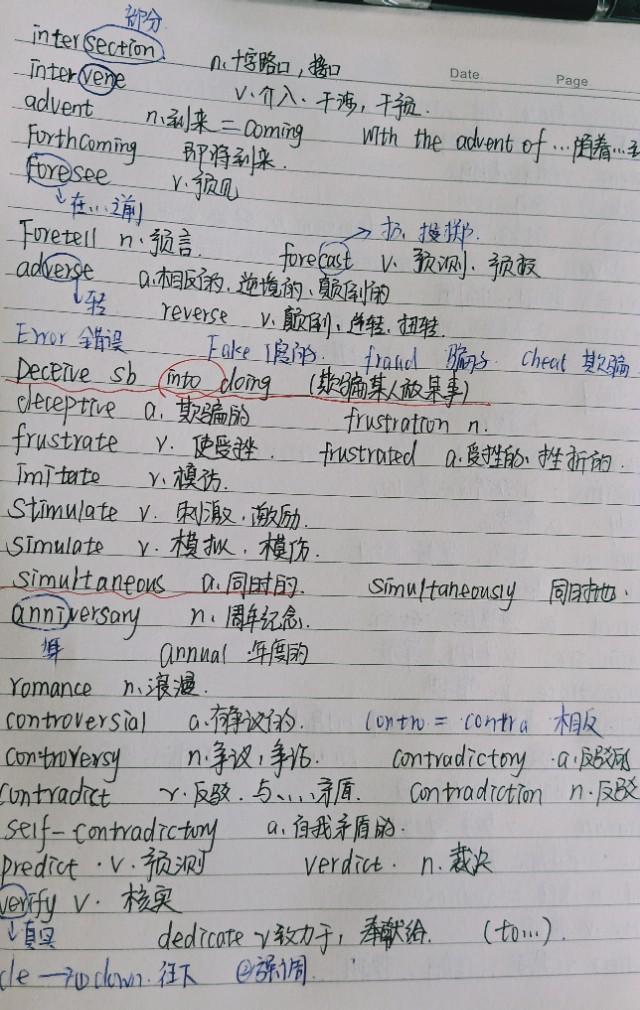 部分
intersection n. 十字路口，接口
Date Page
intervene v. 介入、干涉，干预.
advent n. 到来 = coming with the advent of … 随着…
Forthcoming 即将到来.
foresee v. 预见
↓在…之前
Foretell n. 预言. forecast v. 预测、预报
→扔、投掷.
adverse a. 相反的、逆境的、颠倒的
↓转 reverse v. 颠倒、逆转、扭转.
Error 错误 Fake 假的. fraud 骗子. cheat 欺骗
Deceive sb into doing (欺骗某人做某事)
deceptive a. 欺骗的 frustration n.
frustrate v. 使受挫. frustrated a. 受挫的、挫折的.
imitate v. 模仿.
Stimulate v. 刺激、激励.
simulate v. 模拟、模仿.
simultaneous a. 同时的. simultaneously 同时地.
anniversary n. 周年纪念.
年 annual 年度的
romance n. 浪漫.
controversial a. 有争议的. contro = contra 相反
controversy n. 争议，争论. contradictory a. 反驳的
contradict v. 反驳. 与....矛盾. contradiction n. 反驳
self-contradictory a. 自我矛盾的.
predict v. 预测 verdict. n. 裁决
verify v. 核实
↓真实 dedicate v 致力于，奉献给. (to...).
de → ① down. 往下 ② 强调.